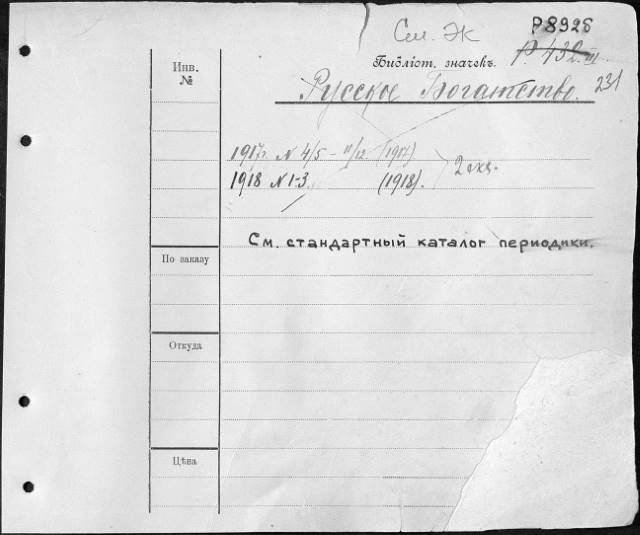 См. Ж
Р8926
Библіот. значекъ.
Р. 432. III.
231
Русское Богатство.
Инв.
№
1917г. N 4/5 – 11/12. (1917).
1918 N 1-3. (1918).
2 экз.
См. стандартный каталог периодики.
По заказу
Откуда
Цѣна